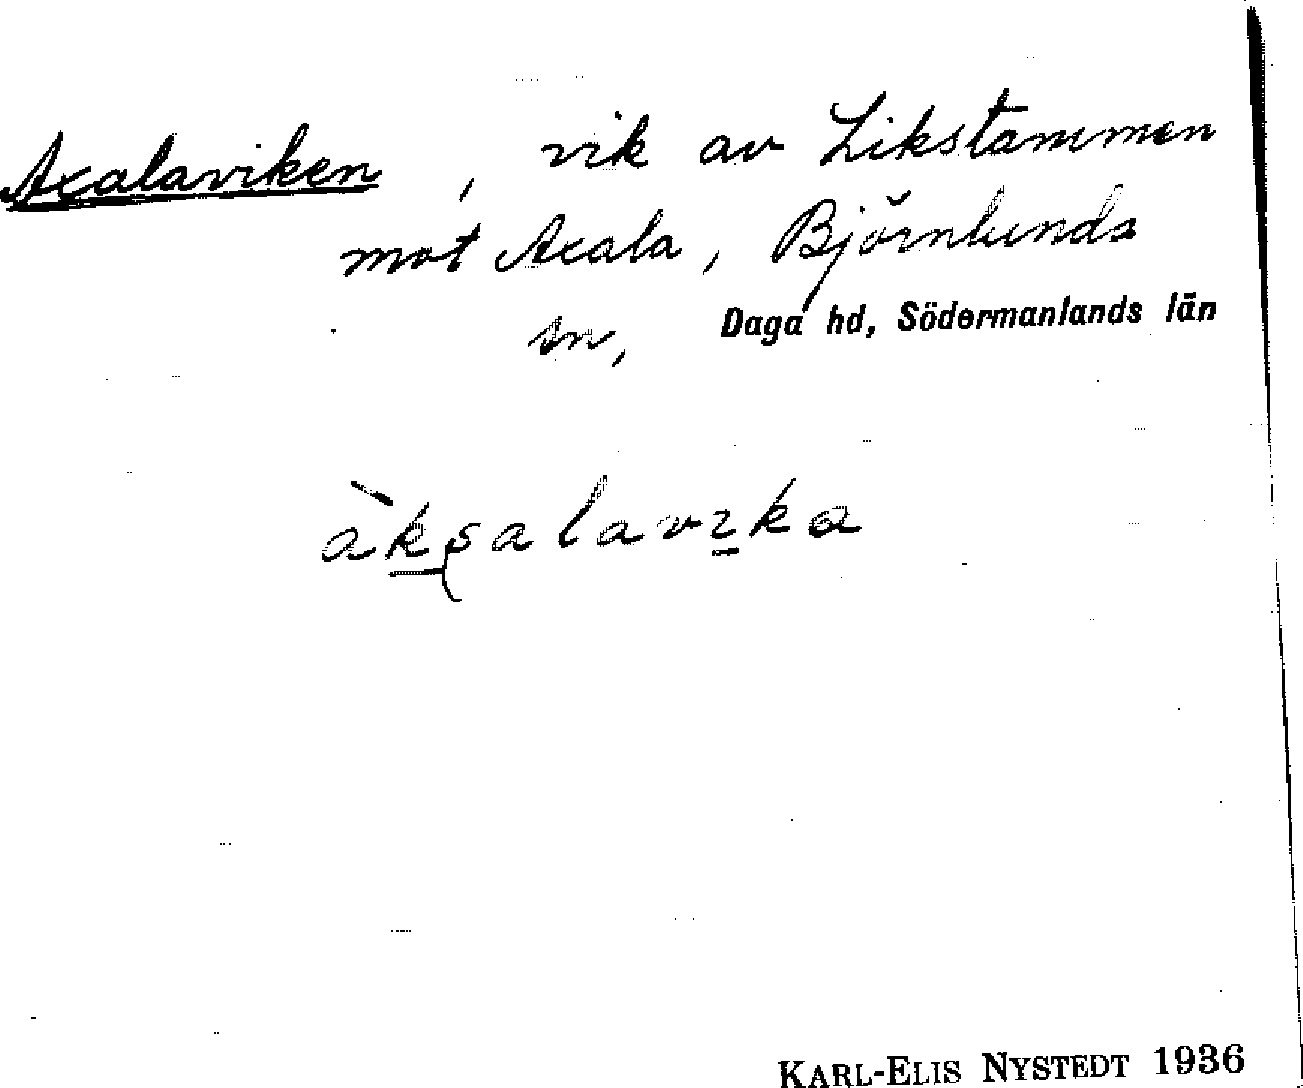 Axalaviken, vik av Likstammen
mot Axala, Björnlunda
sn, Daga hd, Södermanlands län
àksalavika
KARL-ELIS NYSTEDT 1936